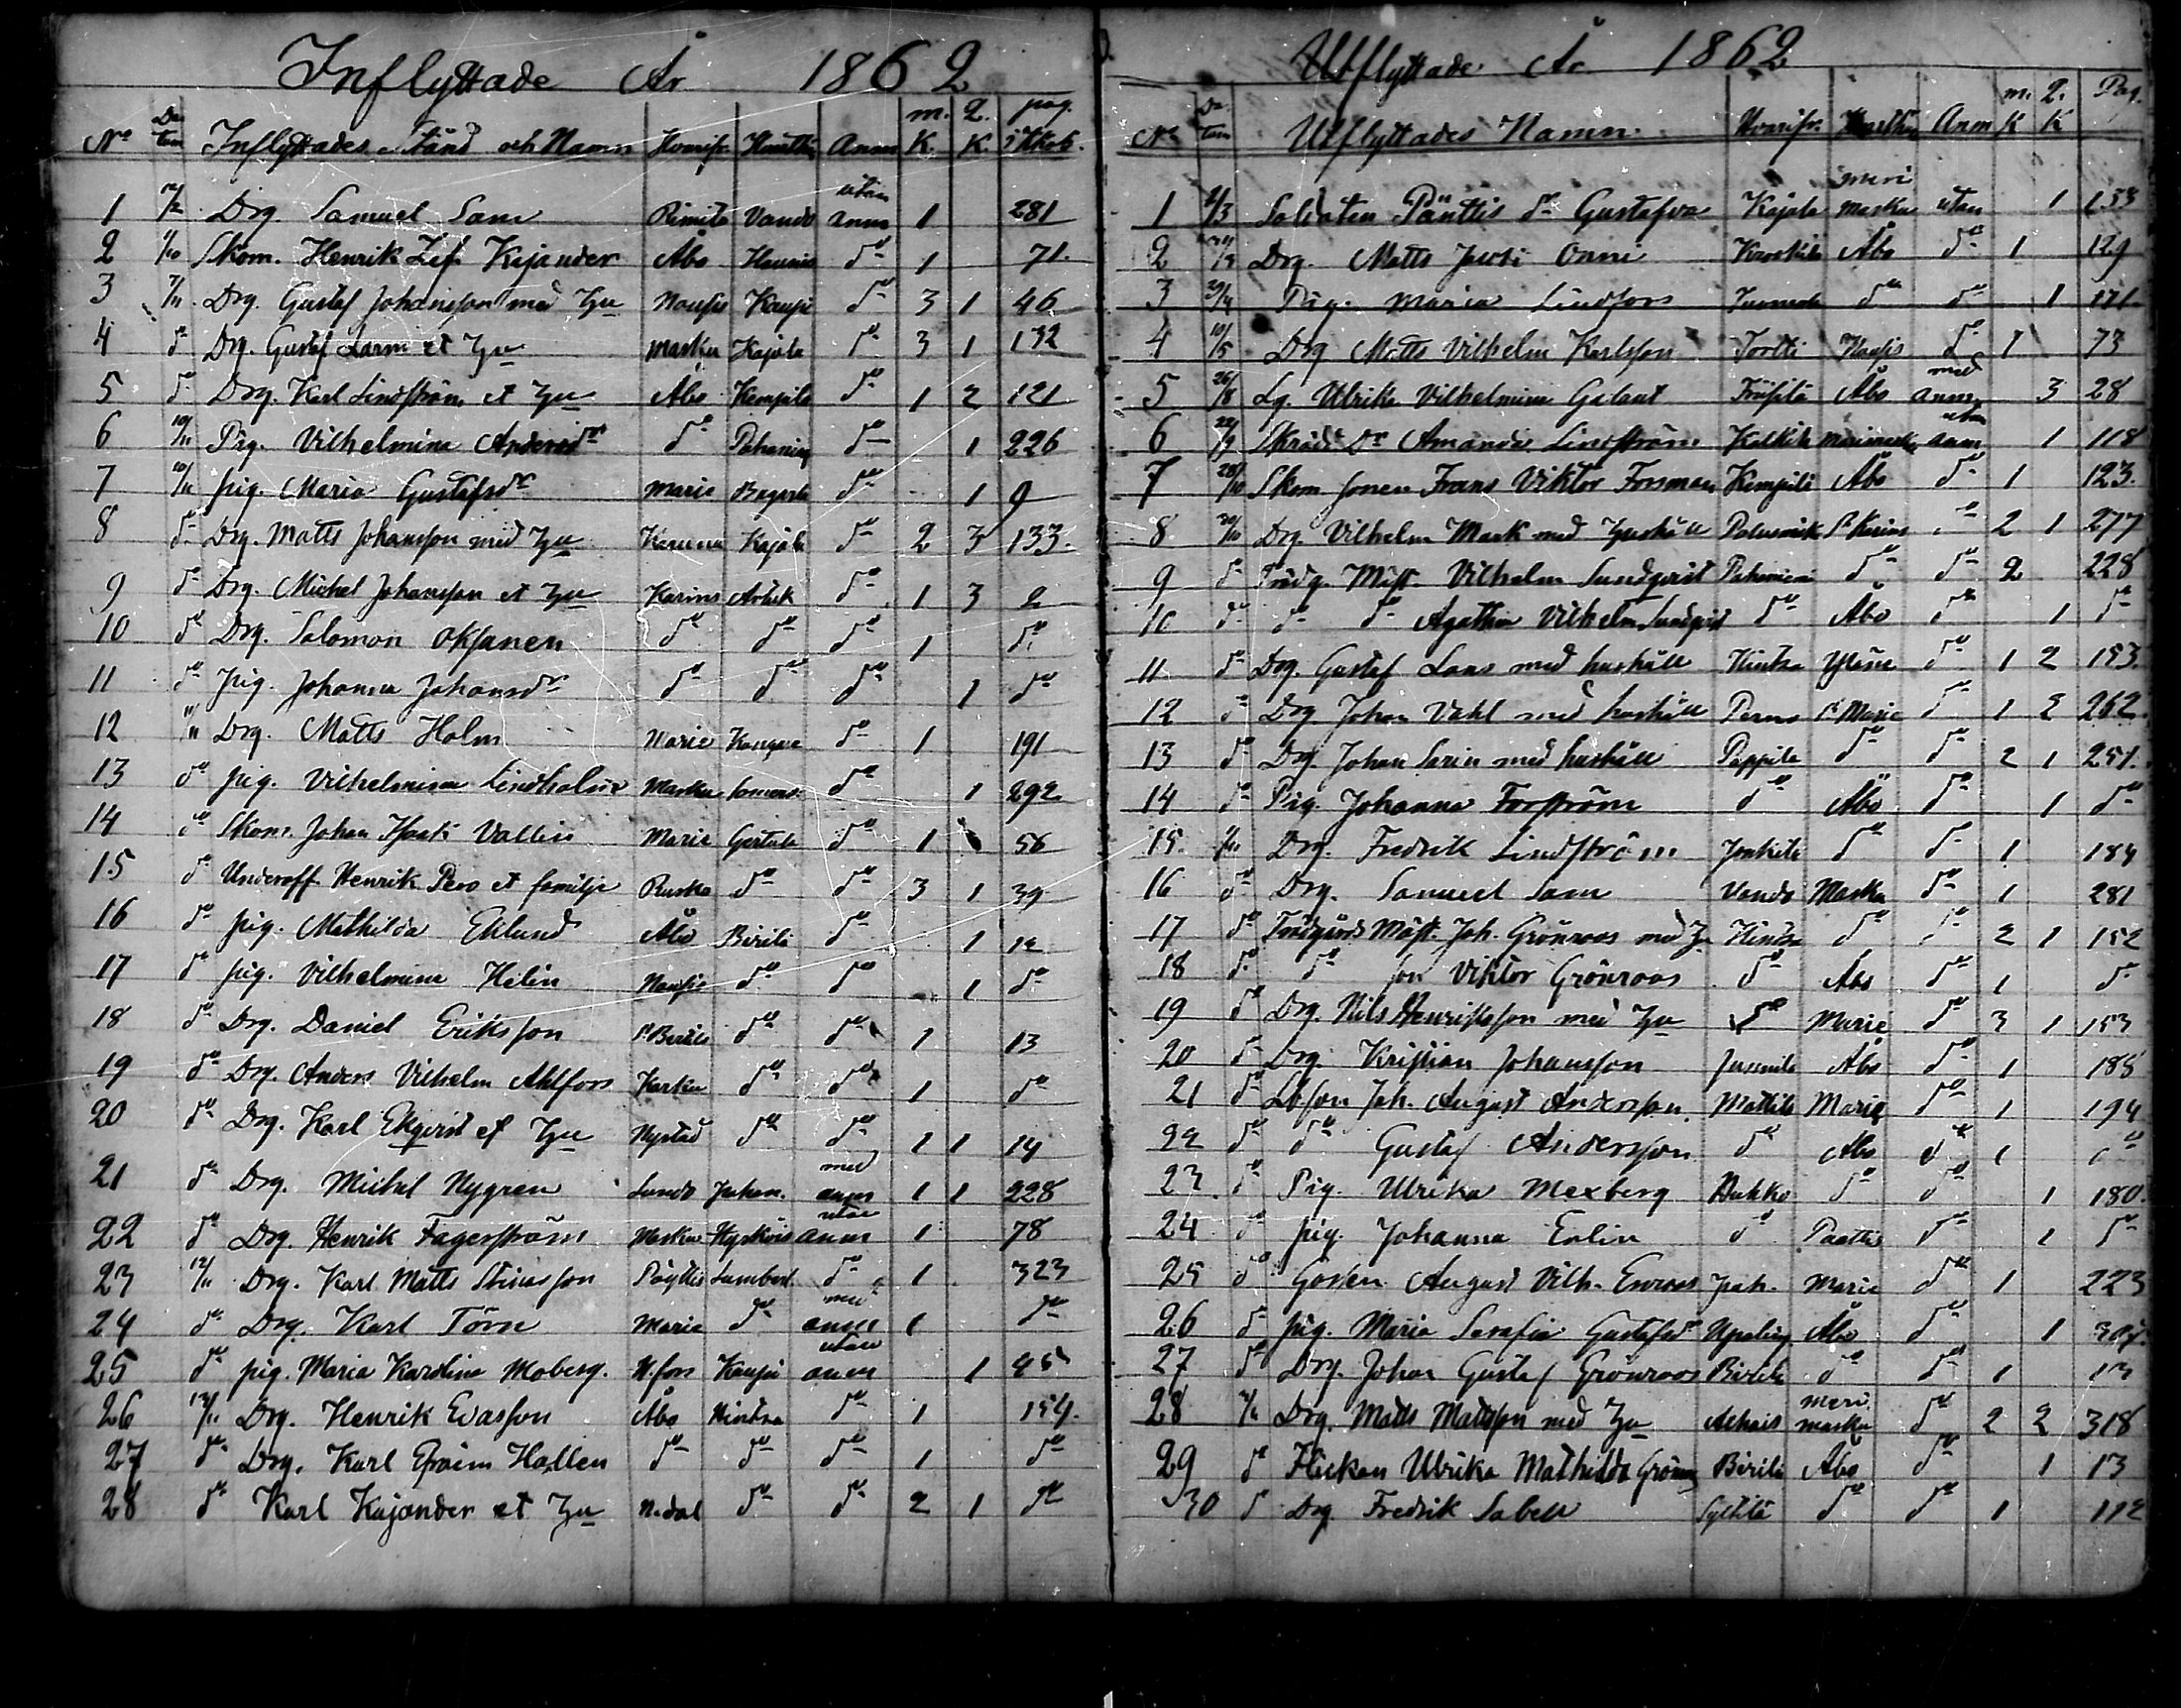 Inflyttade År 1862
No Datum Inflyttades Stånd och Namn Hvarifr. Hvarthän Anm m. K. q. K. pag. i Kkob.
1 12/2 Drg. Samuel Sam Rimito Vando utan anm 1 281
2 1/10 Skom. Henrik Zef. Kajander Åbo d:o 1 71
3 7/11 Drg. Gustaf Johansson med Hu Nousis Kaupi d:o 3 1 46
4 d:o Drg. Gustaf Larm et Hu Masku Kajala d:o 3 1 132
5 d:o Drg. Karl Lindström et Hu Åbo Kempilä d:o 1 2 121
6 10/11 Pig. Vilhelmina Andersdr d:o Pahaniemi d:o 1 226
7 10/11 pig. Maria Gustafsdr Marie d:o 1 9
8 d:o Drg. Matts Johansson med Hu Karuna Kajala d:o 2 3 133
9 d:o Drg. Michel Johansson et Hu Karins Arhuk d:o 1 3 2
10 d:o Drg. Salomon Oksanen d:o d:o d:o 1 d:o
11 d:o pig. Johanna Johansdr d:o d:o d:o 1 d:o
12 11/11 Drg. Matts Holm Marie d:o 1 191
13 d:o pig. Vilhelmina Lindholm Masku d:o 1 292
14 d:o Skom. Johan Isaak Vallin Marie Gertula d:o 1 56
15 d:o Underoff. Henrik Pero et familje Rusko d:o d:o 3 1 39
16 d:o pig. Mathilda Eklund Åbo Birila d:o 1 12
17 d:o pig. Vilhelmina Helin Nousis d:o d:o 1 d:o
18 d:o Drg. Daniel Eriksson d:o d:o 1 13
19 d:o Drg. Anders Vilhelm Ahlfors Karku d:o d:o 1 d:o
20 d:o Drg. Karl Ekqvist et Hu Nystad d:o d:o 1 1 14
21 d:o Drg. Michel Nygren Lundo Pahan. med anm 1 1 228
22 d:o Drg. Henrik Fagerström Masku utan anm 1 78
23 12/11 Drg. Karl Matts Stinasson Pöyttis d:o 1 323
24 d:o Drg. Karl Törn Marie d:o med anm 1 d:o
25 d:o pig. Maria Karolina Moberg. H.fors Kaupi utan anm 1 45
26 13/11 Drg. Henrik Evasson Åbo Hintsa d:o 1 154
27 d:o Drg. Karl Efraim Hallen d:o d:o d:o 1 d:o
28 d:o Karl Kajander et Hu N.dal d:o d:o 2 1 d:o
Utflyttade År 1862
No Datum Utflyttades Namn Hvarifr. Hvarthän Anm m. K q. K Pag.
1 21/3 Soldaten Pänttis dr Gustafva Kajala Meri masku utan 1 133
2 Drg. Matts Jacobi Onni Åbo d:o 1 129
3 29/4 Pig. Maria Lindfors d:o d:o 1 171
4 10/5 Drg Matts Vilhelm Karlsson Tortti Nousis d:o 1 73
5 26/8 Lg. Ulrika Vilhelmina Galant Åbo med anm 3 28
6 22/9 Skrädd. Dr Amanda Lindström Merimasku utan anm 1 118
7 28/10 Skom sonen Frans Viktor Forsman Kempilä Åbo d:o 1 123
8 30/10 Drg. Vilhelm Mark med Hushåll St Karins d:o 2 1 277
9 d:o Trädg. Mäst. Vilhelm Sundqvist Pahaniemi d:o d:o 2 228
10 d:o d:o d:o Agatha Vilhelm. Sundqvist d:o Åbo d:o 1 d:o
11 d:o Drg. Gustaf Lans med hushåll Hintsa Yläne d:o 1 2 153
12 d:o Drg Johan Vahl med hushåll Perno St Marie d:o 1 2 262
13 d:o Drg. Johan Sarin med hushåll Pappila d:o d:o 2 1 251
14 d:o Pig. Johanna Forström d:o Åbo d:o 1 d:o
15 1/11 Drg. Fredrik Lindström d:o d:o 1 184
16 d:o Drg. Samuel Sam Vando Masku d:o 1 281
17 d:o Trädgårds Mäst. Joh. Grönroos med H. Hintsa d:o d:o 2 1 152
18 d:o d:o son Viktor Grönroos d:o Åbo d:o 1 d:o
19 d:o Drg. Nils Henriksson med Hu d:o Marie d:o 3 1 153
20 d:o Drg. Kristian Johansson Åbo d:o 1 185
21 d:o Lbson Joh. August Andersson Mattila Marie d:o 1 194
22 d:o d:o Gustaf Andersson d:o Åbo d:o 1 d:o
23 d:o Pig. Ulrika Mexberg Hukko d:o d:o 1 180
24 d:o pig. Johanna Erlin d:o Paattis d:o 1 d:o
25 d:o Gossen August Vilh. Enroos Pah. Marie d:o 1 223
26 d:o pig. Maria Serafia Gustafsdr Åbo d:o 1
27 d:o Drg. Johan Gustaf Grönroos Birila d:o d:o 1 13
28 Drg. Matts Mattsson med Hu Meri masku d:o 2 2 318
29 d:o Flickan Ulrika Mathilda Grönroos Birila Åbo d:o 1 13
30 d:o Drg. Fredrik Sabell d:o d:o 1 112